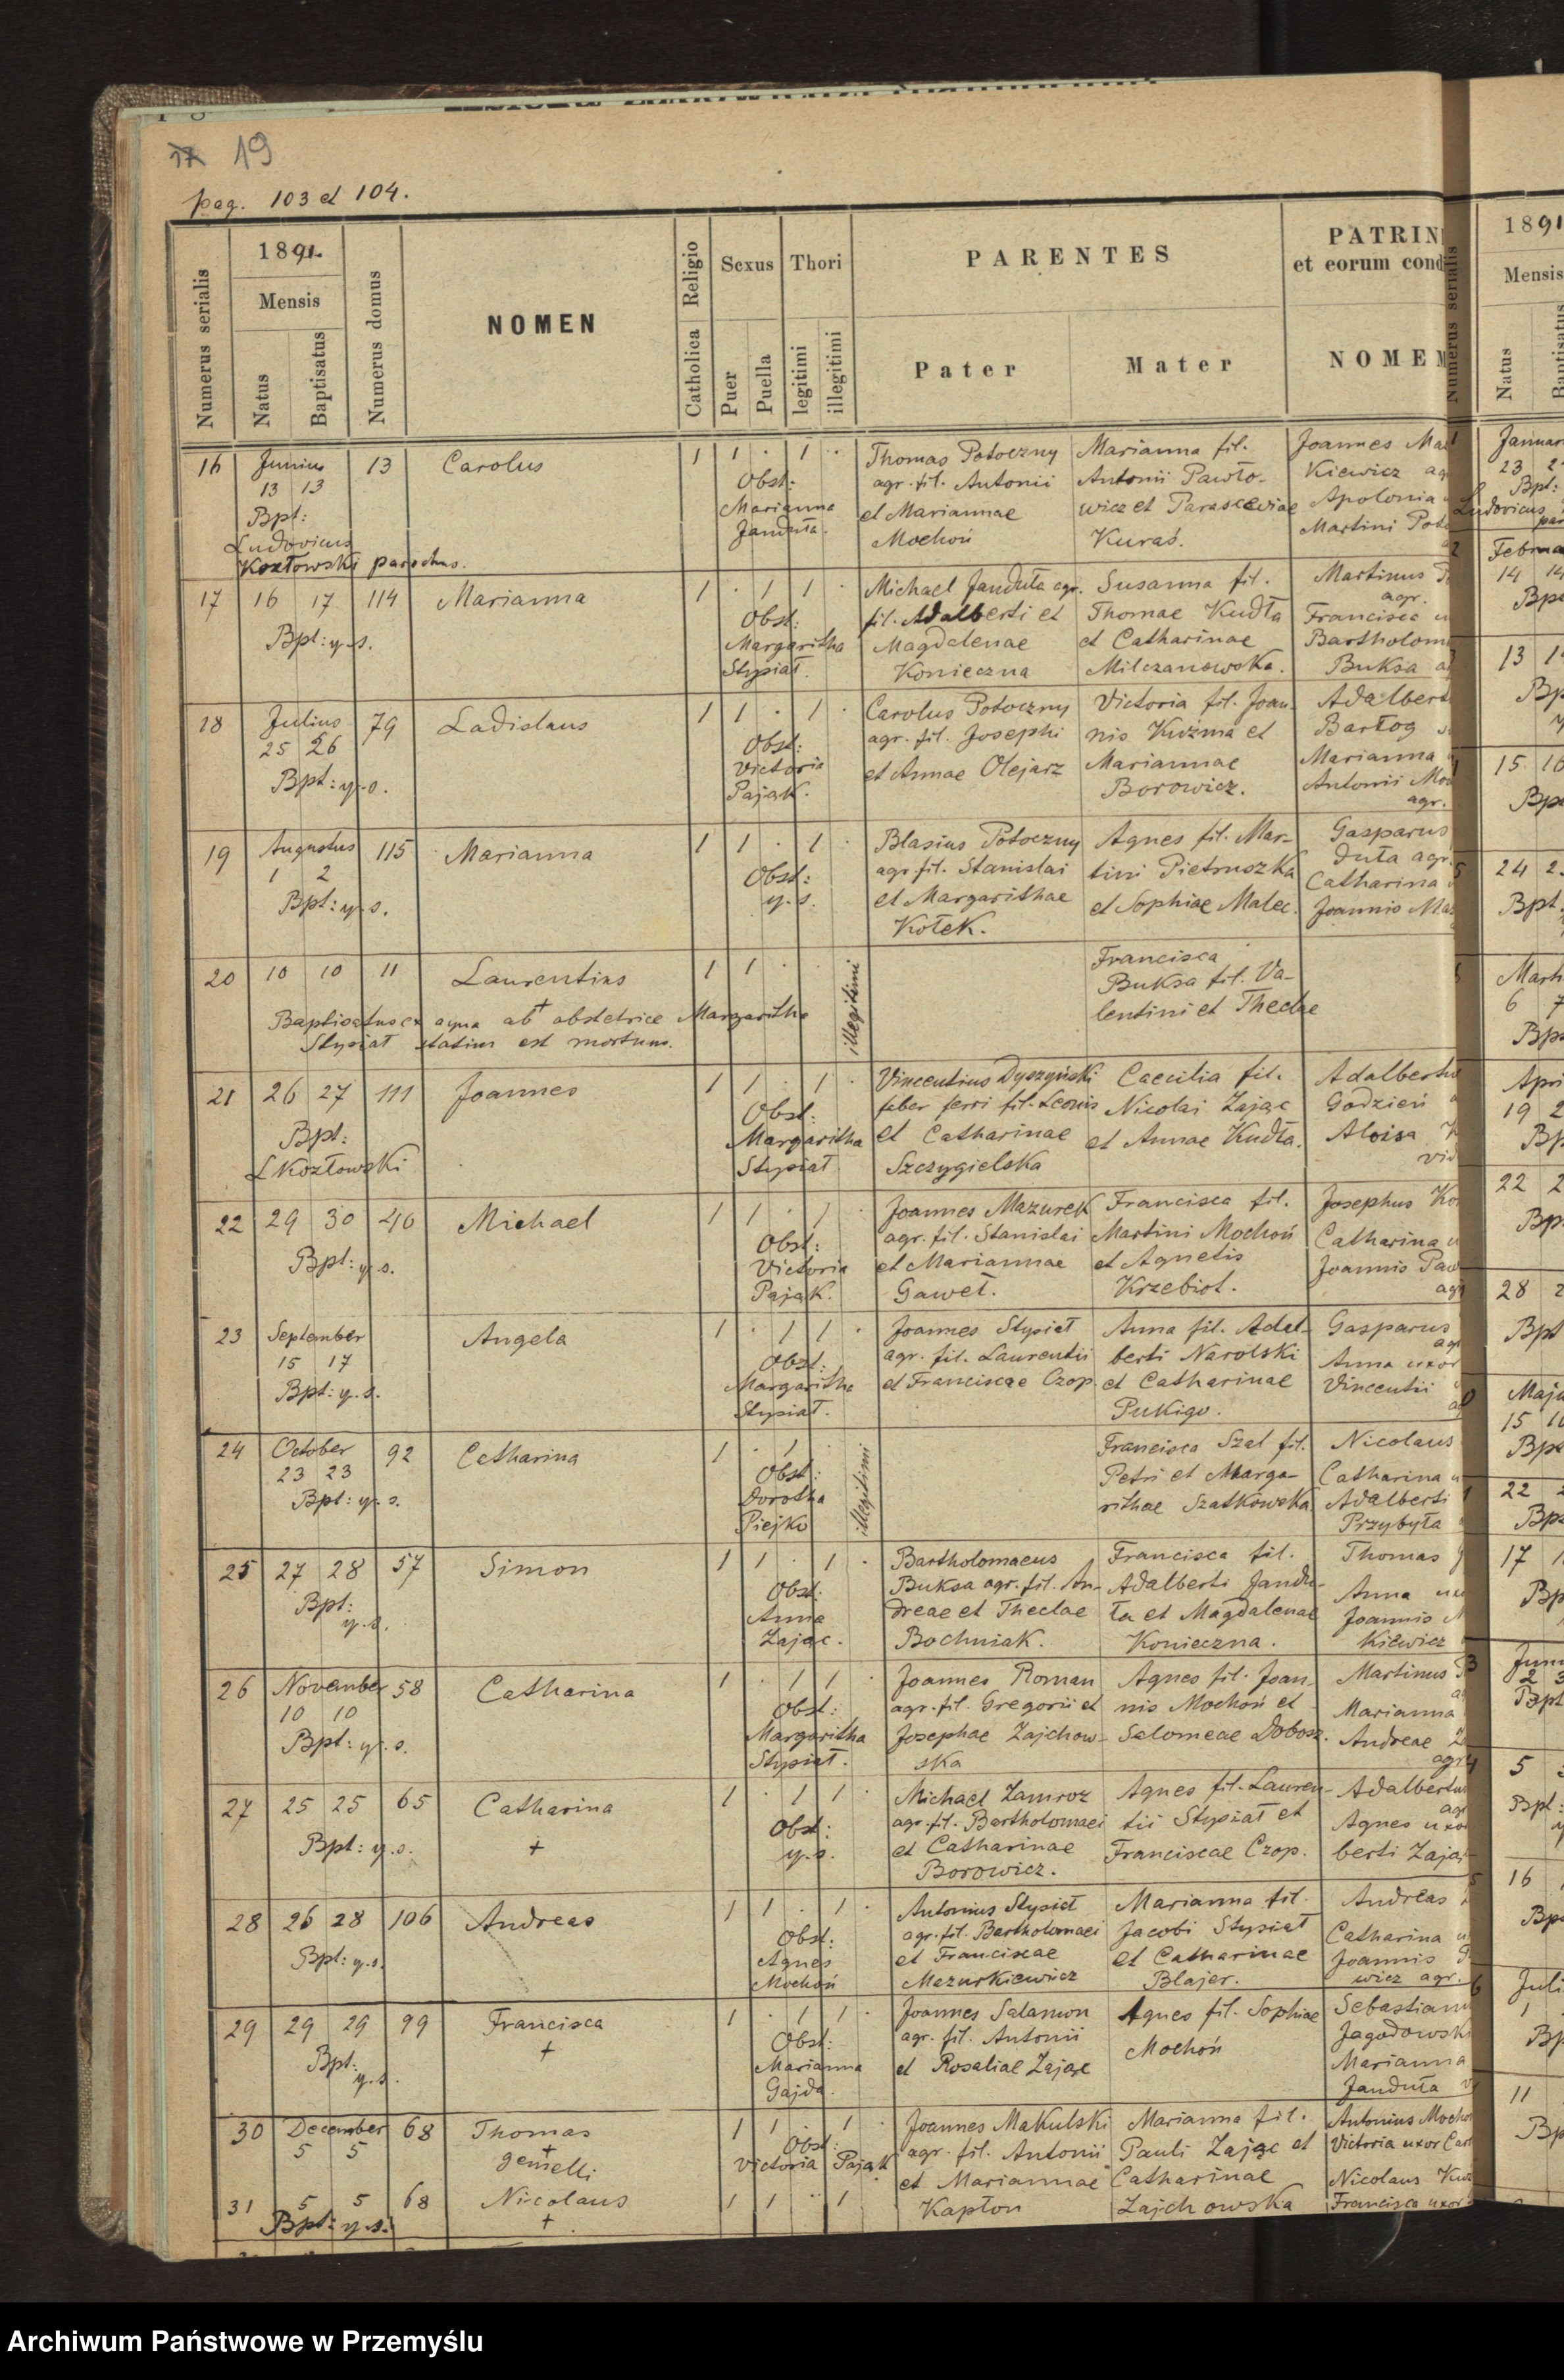 19
pag. 103 et 104.
Numerus serialis
1891.
Mensis
Natus
Baptisatus
Numerus domus
NOMEN
Religio
Catholica
Sexus
Puer
Puella
Thori
legitimi
illegitimi
PARENTES
Pater
Mater
PATRIN
et eorum cond
NOMEN
Numerus serialis
1891
Mensis
Natus
Baptisatus
16 Junius 13 Carolus 1 1 . 1 . Thomas Potoczny Marianna fil. Joannes Ma
13 13 Obst: agr. fil. Antonii Antonii Pawło- Kiewicz ag
Bpt: Marianna et Mariannae wicz et Parascewiae Apolonia
Ludovicus Janduła. Mochoń Kuraś. Martini Pot
Kozłowski parochus.
17 16 17 114 Marianna 1 . 1 1 . Michael Janduła agr. Susanna fil. Martinus
Obst: fil. Adalberti et Thomae Kudła agr.
Bpt: y.s. Margaritha Magdalenae et Catharinae Francisca u
Stysiał. Konieczna Milczanowska. Bartholom
Buksa a
18 Julius 79 Ladislaus 1 1 . 1 . Carolus Potoczny Victoria fil. Joan- Adalbert
25 26 Obst: agr. fil. Josephi nis Kuźma et Bartog
Bpt: y.s. Victoria et Annae Olejarz Mariannae Marianna
Pająk. Borowicz. Antonii Mo
agr.
19 Augustus 115 Marianna 1 1 . 1 . Blasius Potoczny Agnes fil. Mar- Gasparus
1 2 Obst: agr fil. Stanislai tini Pietruszka duła agr.
Bpt: y.s. y.s. et Margarithae et Sophiae Malec. Catharina
Kołek. Joannis Ma
20 10 10 11 Laurentius 1 1 . illegitimi Francisca
+ Buksa fil. Va-
Baptisatus ex aqua ab obstetrice Margaritha lentini et Theclae
Stysiał statim est mortuus.
21 26 27 111 Joannes 1 1 . 1 . Vincentius Dyszyński Caecilia fil. Adalbertu
Bpt: Obst: faber ferri fil. Leonis Nicolai Zając Godzień
LKozłowski Margaritha et Catharinae et Annae Kudła. Aloisa
Stysiał Szczygielska vid
22 29 30 46 Michael 1 1 . 1 . Joannes Mazurek Francisca fil. Josephus Ko
Bpt: y.s. Obst: agr. fil. Stanislai Martini Mochoń Catharina u
Victoria et Mariannae et Agnetis Joannis Paw
Pająk. Gaweł. Krzebiot. agr
23 September Angela 1 . 1 1 . Joannes Stysiał Anna fil. Adal- Gasparus
15 17 Obst: agr. fil. Laurentii berti Narolski agr
Bpt: y.s. Margaritha et Franciscae Czop. et Catharinae Anna uxor
Stysiał. Pukigo. Vincentii
24 October 92 Catharina 1 . 1 illegitimi Francisca Szal fil. Nicolaus
23 23 Obst: Petri et Marga- Catharina u
Bpt: y.s. Dorotha rithae Szatkowska Adalberti
Piejko Przybyła
25 27 28 57 Simon 1 1 . 1 . Bartholomaeus Francisca fil. Thomas
Bpt: Obst: Buksa agr. fil. An- Adalberti Jandu- Anna ux
y.s. Anna dreae et Theclae ła et Magdalenae Joannis M
Zając. Bochniak. Konieczna. Kiewicz
26 November 58 Catharina 1 . 1 1 . Joannes Roman Agnes fil. Joan- Martinus
10 10 Obst: agr. fil. Gregorii et nis Mochoń et Marianna
Bpt: y.s. Margaritha Josephae Zajchow- Salomeae Dobosz. Andreae Z
Stysiał. ska agr
27 25 25 65 Catharina 1 . 1 1 . Michael Zamroz Agnes fil. Lauren- Adalbertus
Bpt: y.s. + Obst: agr. fil. Bartholomaei tii Stysiał et Agnes uxo
y.s. et Catharinae Franciscae Czop. berti Zają
Borowicz.
28 26 28 106 Andreas 1 1 . 1 . Antonius Stysiał Marianna fil. Andreas
Bpt: y.s. Obst: agr. fil. Bartholomaei Jacobi Stysiał Catharina u
Agnes et Franciscae et Catharinae Joannis
Mochoń Mazurkiewicz Blajer. wicz agr.
29 29 29 99 Francisca 1 . 1 1 . Joannes Salamon Agnes fil. Sophiae Sebastianu
Bpt: + Obst: agr. fil. Antonii Mochoń Jagodowsk
y.s. Marianna et Rosaliae Zając Marianna
Gajda. Janduła v
30 December 68 Thomas 1 1 . 1 . Joannes Makulski Marianna fil. Antonius Mocho
5 5 + Obst: agr. fil. Antonii Pauli Zając et Victoria uxor Car
gemelli Victoria Pająk et Mariannae Catharinae Nicolaus Kuź
31 5 5 68 Nicolaus 1 1 . 1 Kapłon Zajchowska Francisca uxor
Bpt: y.s. +
Januar
23 2
Bpt:
Ludovicus
par
Februa
14 14
Bpt
13 1
Bp
15 16
Bpt
24 2
Bpt.
Marti
6 7
Bpt
Apri
19 2
Bp
22 2
Bp
28 2
Bpt
Maju
15 16
Bpt
22 2
Bpt
17 1
Bp
Juni
2 3
Bpt
5
Bpt:
16
Bp
Juli
1
Bp
11
Bp
Archiwum Państwowe w Przemyślu